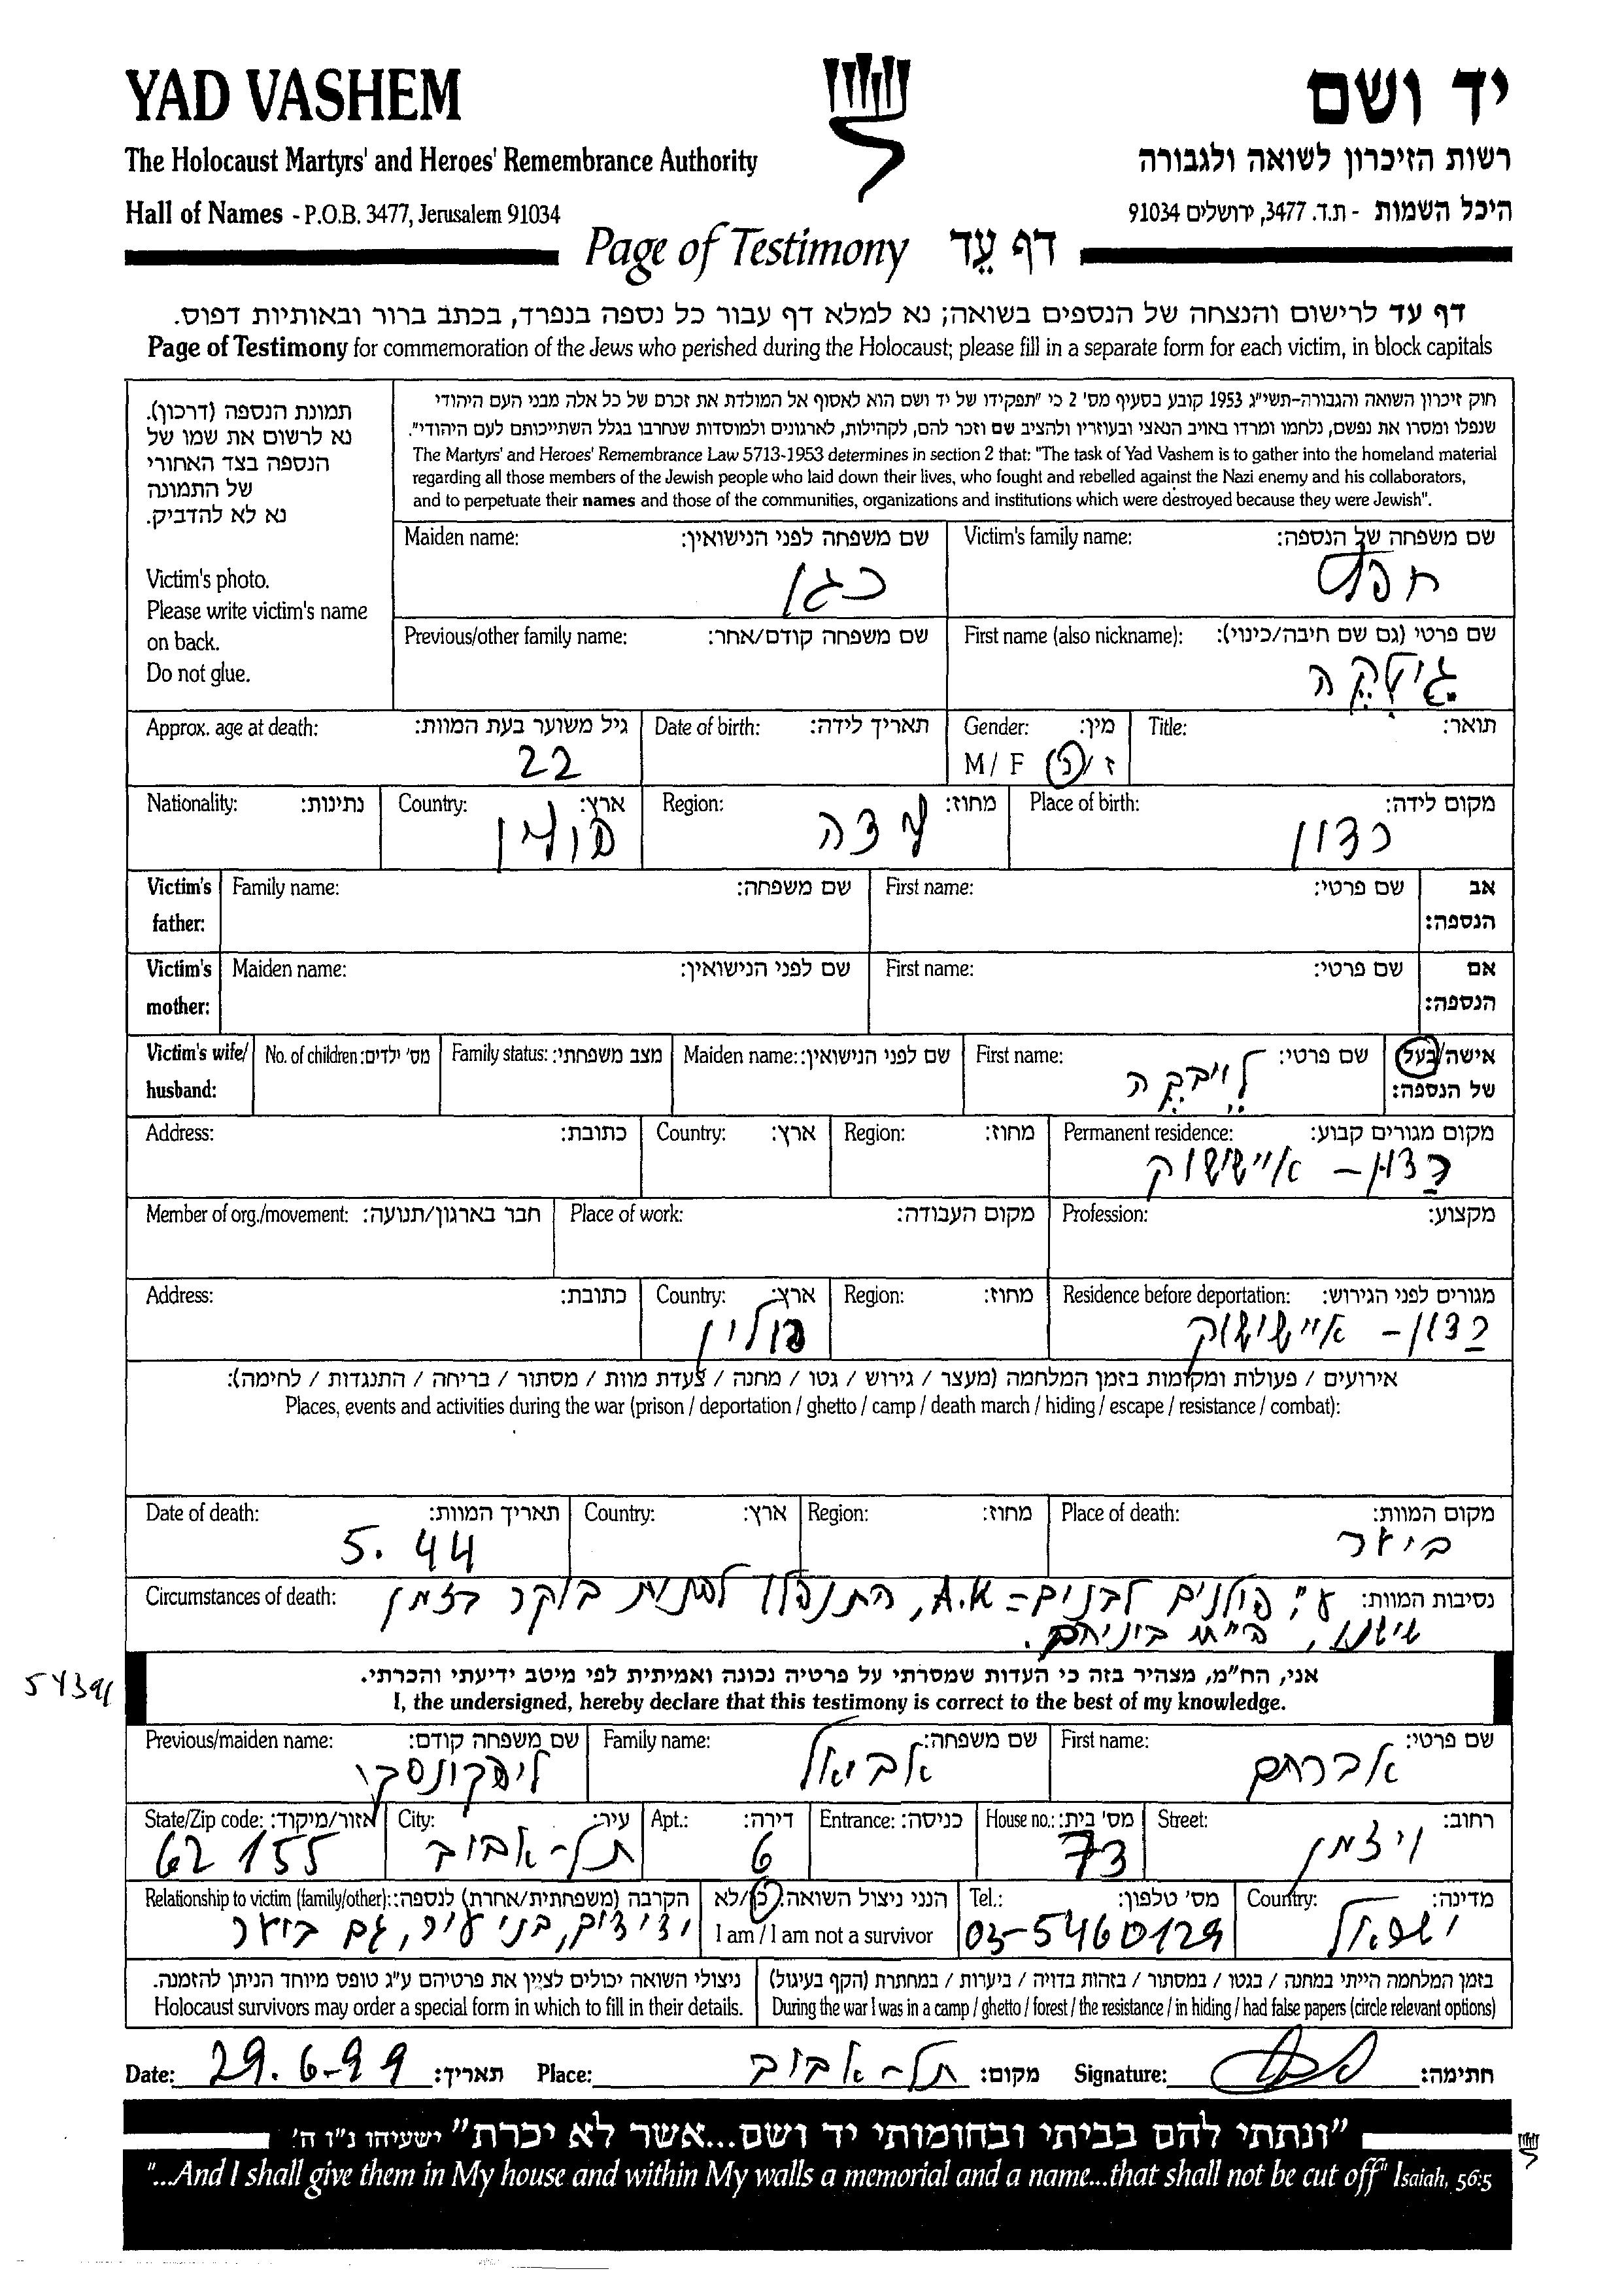 YAD VASHEM
יד ושם
The Holocaust Martyrs' and Heroes' Remembrance Authority
רשות הזיכרון לשואה ולגבורה
Hall of Names - P.O.B. 3477, Jerusalem 91034
היכל השמות - ת.ד. 3477, ירושלים 91034
Page of Testimony דף עֵד
דף עד לרישום והנצחה של הנספים בשואה; נא למלא דף עבור כל נספה בנפרד, בכתב ברור ובאותיות דפוס.
Page of Testimony for commemoration of the Jews who perished during the Holocaust; please fill in a separate form for each victim, in block capitals
תמונת הנספה (דרכון).
נא לרשום את שמו של
הנספה בצד האחורי
של התמונה
נא לא להדביק.
Victim's photo.
Please write victim's name
on back.
Do not glue.
חוק זיכרון השואה והגבורה-תשי"ג 1953 קובע בסעיף מס' 2 כי "תפקידו של יד ושם הוא לאסוף אל המולדת את זכרם של כל אלה מבני העם היהודי
שנפלו ומסרו את נפשם, נלחמו ומרדו באויב הנאצי ובעוזריו ולהציב שם וזכר להם, לקהילות, לארגונים ולמוסדות שנחרבו בגלל השתייכותם לעם היהודי".
The Martyrs' and Heroes' Remembrance Law 5713-1953 determines in section 2 that: "The task of Yad Vashem is to gather into the homeland material
regarding all those members of the Jewish people who laid down their lives, who fought and rebelled against the Nazi enemy and his collaborators,
and to perpetuate their names and those of the communities, organizations and institutions which were destroyed because they were Jewish".
Victim's family name: שם משפחה של הנספה:
Maiden name: שם משפחה לפני הנישואין:
כגן
First name (also nickname): שם פרטי (גם שם חיבה/כינוי):
גיטקה
Previous/other family name: שם משפחה קודם/אחר:
Title: תואר:
Gender: מין:
M / F ז / נ
Date of birth: תאריך לידה:
Approx. age at death: גיל משוער בעת המוות:
22
Place of birth: מקום לידה:
רדון
Region: מחוז:
לידה
Country: ארץ:
פולין
Nationality: נתינות:
Victim's father: אב הנספה:
First name: שם פרטי:
Family name: שם משפחה:
Victim's mother: אם הנספה:
First name: שם פרטי:
Maiden name: שם לפני הנישואין:
Victim's wife/ husband: אישה/בעל של הנספה:
First name: שם פרטי:
לייבקה
Maiden name: שם לפני הנישואין:
Family status: מצב משפחתי:
No. of children: מס' ילדים:
Permanent residence: מקום מגורים קבוע:
רדון - איישישוק
Region: מחוז:
Country: ארץ:
Address: כתובת:
Profession: מקצוע:
Place of work: מקום העבודה:
Member of org./movement: חבר בארגון/תנועה:
Residence before deportation: מגורים לפני הגירוש:
רדון - איישישוק
Region: מחוז:
Country: ארץ:
פולין
Address: כתובת:
אירועים / פעולות ומקומות בזמן המלחמה (מעצר / גירוש / גטו / מחנה / צעדת מוות / מסתור / בריחה / התנגדות / לחימה):
Places, events and activities during the war (prison / deportation / ghetto / camp / death march / hiding / escape / resistance / combat):
Place of death: מקום המוות:
ביער
Region: מחוז:
Country: ארץ:
Date of death: תאריך המוות:
5. 44
Circumstances of death: נסיבות המוות:
ע"י פולנים לבנים = A.K, התנפלו לפנות בוקר בזמן
שישנו, ביניהם.
אני, הח"מ, מצהיר בזה כי העדות שמסרתי על פרטיה נכונה ואמיתית לפי מיטב ידיעתי והכרתי.
I, the undersigned, hereby declare that this testimony is correct to the best of my knowledge.
First name: שם פרטי:
אברהם
Family name: שם משפחה:
אביאל
Previous/maiden name: שם משפחה קודם:
ליפקונסקי
Street: רחוב:
ויצמן
House no.: מס' בית:
73
Entrance: כניסה:
Apt.: דירה:
6
City: עיר:
תל-אביב
State/Zip code: אזור/מיקוד:
62 155
Country: מדינה:
ישראל
Tel.: מס' טלפון:
03-5460129
הנני ניצול השואה: כן/לא
I am / I am not a survivor
Relationship to victim (family/other): הקרבה (משפחתית/אחרת) לנספה:
ידידים, בני עיר, גם ביער
בזמן המלחמה הייתי במחנה / בגטו / במסתור / בזהות בדויה / ביערות / במחתרת (הקף בעיגול)
During the war I was in a camp / ghetto / forest / the resistance / in hiding / had false papers (circle relevant options)
ניצולי השואה יכולים לציין את פרטיהם ע"ג טופס מיוחד הניתן להזמנה.
Holocaust survivors may order a special form in which to fill in their details.
Date: 29.6-99 תאריך:
Place: תל-אביב מקום:
Signature: חתימה:
"ונתתי להם בביתי ובחומותי יד ושם...אשר לא יכרת" ישעיהו נ"ו ה'
"...And I shall give them in My house and within My walls a memorial and a name...that shall not be cut off" Isaiah, 56:5